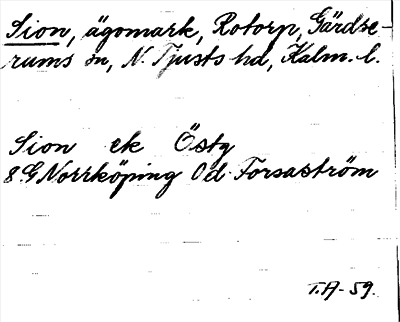 Sion, ägomark, Rotorp, Gärdse-
rums sn, N. Tjusts hd, Kalm. l.
Sion ek Östg
8 G Norrköping Od Forsaström
T.A-59.